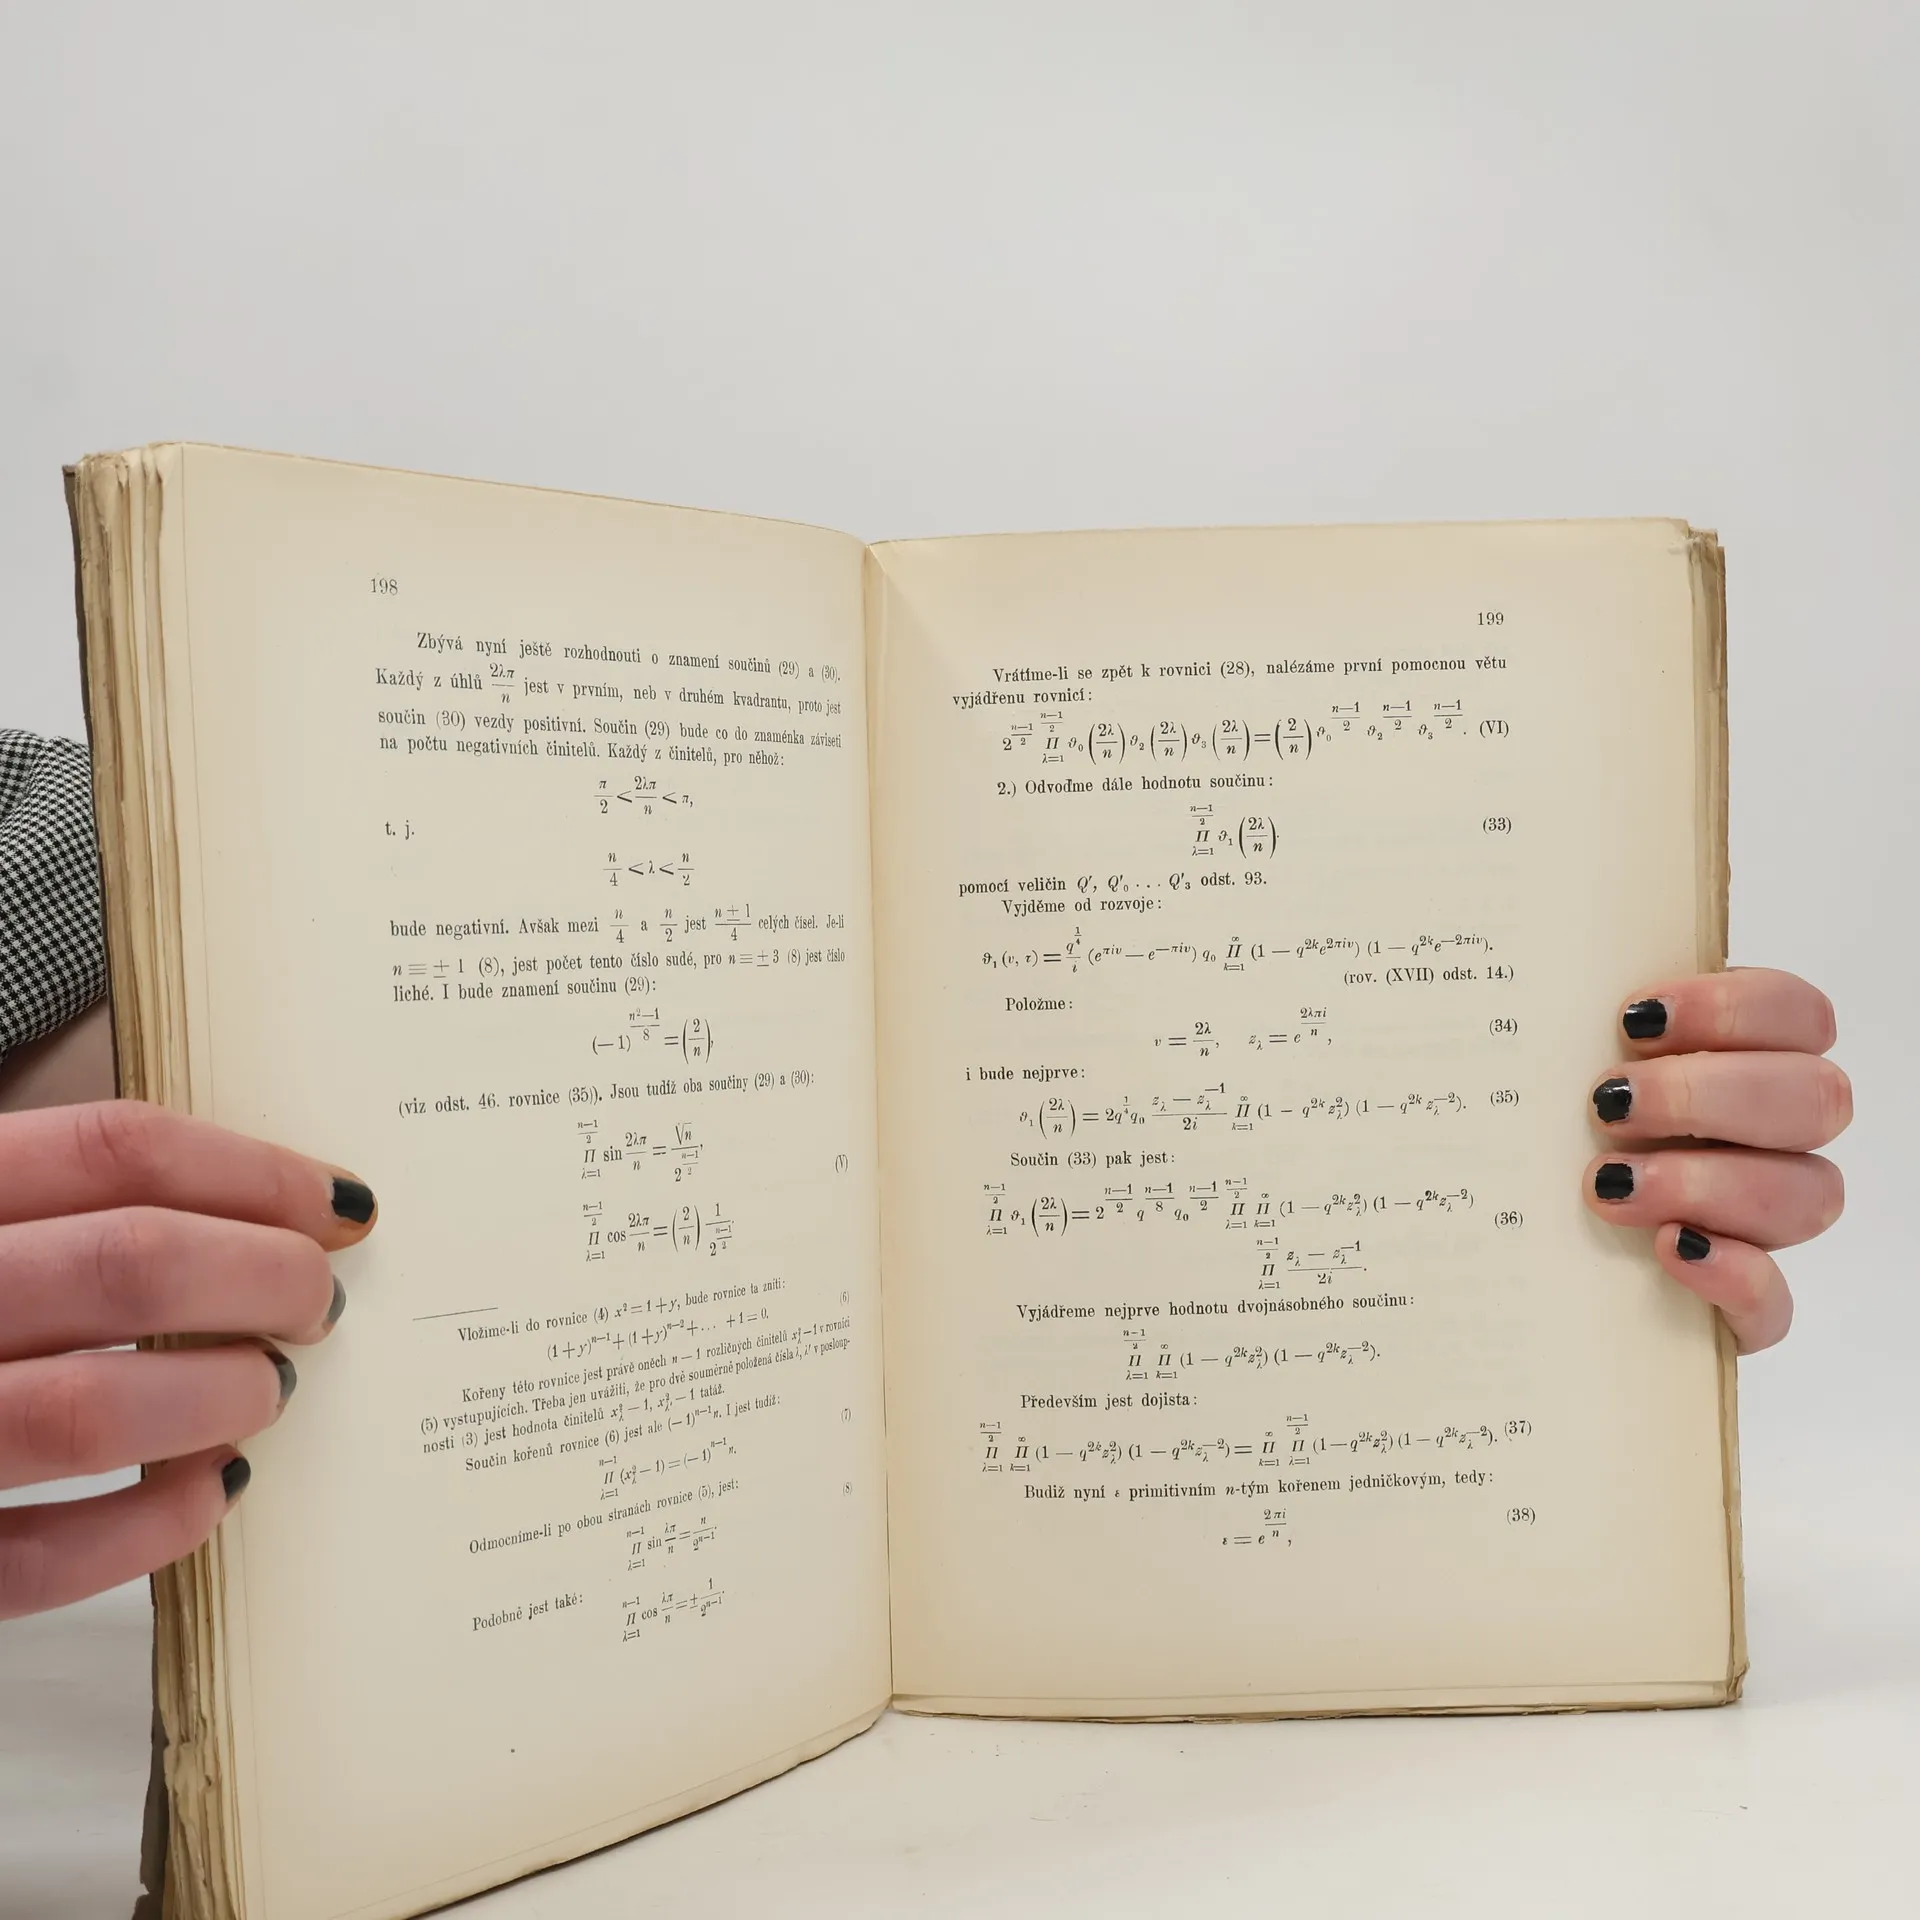 198
Zbývá nyní ještě rozhodnouti o znamení součinů (29) a (30).
Každý z úhlů 2λπ/n jest v prvním, neb v druhém kvadrantu, proto jest
součin (30) vezdy positivní. Součin (29) bude co do znaménka záviseti
na počtu negativních činitelů. Každý z činitelů, pro něhož:
π/2 < 2λπ/n < π,
t. j.
n/4 < λ < n/2
bude negativní. Avšak mezi n/4 a n/2 jest (n ± 1)/4 celých čísel. Je-li
n ≡ ± 1 (8), jest počet tento číslo sudé, pro n ≡ ± 3 (8) jest číslo
liché. I bude znamení součinu (29):
(— 1)^((n²—1)/8) = (2/n),
(viz odst. 46. rovnice (35)). Jsou tudíž oba součiny (29) a (30):
Π_{λ=1}^{(n—1)/2} sin 2λπ/n = √n / 2^((n—1)/2),
(V)
Π_{λ=1}^{(n—1)/2} cos 2λπ/n = (2/n) 1 / 2^((n—1)/2).
Vložíme-li do rovnice (4) x² = 1 + y, bude rovnice ta zníti:
(1 + y)^(n—1) + (1 + y)^(n—2) + . . . + 1 = 0. (6)
Kořeny této rovnice jest právě oněch n — 1 rozličných činitelů x_λ² — 1 v rovnici
(5) vystupujících. Třeba jen uvážiti, že pro dvě souměrně položená čísla λ, λ' v posloup-
nosti (3) jest hodnota činitelů x_λ² — 1, x_λ'² — 1 tatáž.
Součin kořenů rovnice (6) jest ale (— 1)^(n—1) n. I jest tudíž:
Π_{λ=1}^{n—1} (x_λ² — 1) = (— 1)^(n—1) n. (7)
Odmocníme-li po obou stranách rovnice (5), jest:
Π_{λ=1}^{n—1} sin λπ/n = n / 2^(n—1). (8)
Podobně jest také:
Π_{λ=1}^{n—1} cos λπ/n = ± 1 / 2^(n—1).
199
Vrátíme-li se zpět k rovnici (28), nalézáme první pomocnou větu
vyjádřenu rovnicí:
2^((n—1)/2) Π_{λ=1}^{(n—1)/2} ϑ₀(2λ/n) ϑ₂(2λ/n) ϑ₃(2λ/n) = (2/n) ϑ₀^((n—1)/2) ϑ₂^((n—1)/2) ϑ₃^((n—1)/2). (VI)
2.) Odvoďme dále hodnotu součinu:
Π_{λ=1}^{(n—1)/2} ϑ₁(2λ/n). (33)
pomocí veličin Q', Q'₀ . . . Q'₃ odst. 93.
Vyjděme od rozvoje:
ϑ₁ (v, τ) = q^(1/4)/i (e^(πiv) — e^(—πiv)) q₀ Π_{k=1}^{∞} (1 — q^(2k) e^(2πiv)) (1 — q^(2k) e^(—2πiv)).
(rov. (XVII) odst. 14.)
Položme:
v = 2λ/n, z_λ = e^(2λπi/n), (34)
i bude nejprve:
ϑ₁(2λ/n) = 2q^(1/4) q₀ (z_λ — z_λ^(—1))/2i Π_{k=1}^{∞} (1 — q^(2k) z_λ²) (1 — q^(2k) z_λ^(—2)). (35)
Součin (33) pak jest:
Π_{λ=1}^{(n—1)/2} ϑ₁(2λ/n) = 2^((n—1)/2) q^((n—1)/8) q₀^((n—1)/2) Π_{λ=1}^{(n—1)/2} Π_{k=1}^{∞} (1 — q^(2k) z_λ²) (1 — q^(2k) z_λ^(—2))
(36)
Π_{λ=1}^{(n—1)/2} (z_λ — z_λ^(—1))/2i.
Vyjádřeme nejprve hodnotu dvojnásobného součinu:
Π_{λ=1}^{(n—1)/2} Π_{k=1}^{∞} (1 — q^(2k) z_λ²) (1 — q^(2k) z_λ^(—2)).
Především jest dojista:
Π_{λ=1}^{(n—1)/2} Π_{k=1}^{∞} (1 — q^(2k) z_λ²) (1 — q^(2k) z_λ^(—2)) = Π_{k=1}^{∞} Π_{λ=1}^{(n—1)/2} (1 — q^(2k) z_λ²) (1 — q^(2k) z_λ^(—2)). (37)
Budiž nyní ε primitivním n-tým kořenem jedničkovým, tedy:
ε = e^(2πi/n), (38)